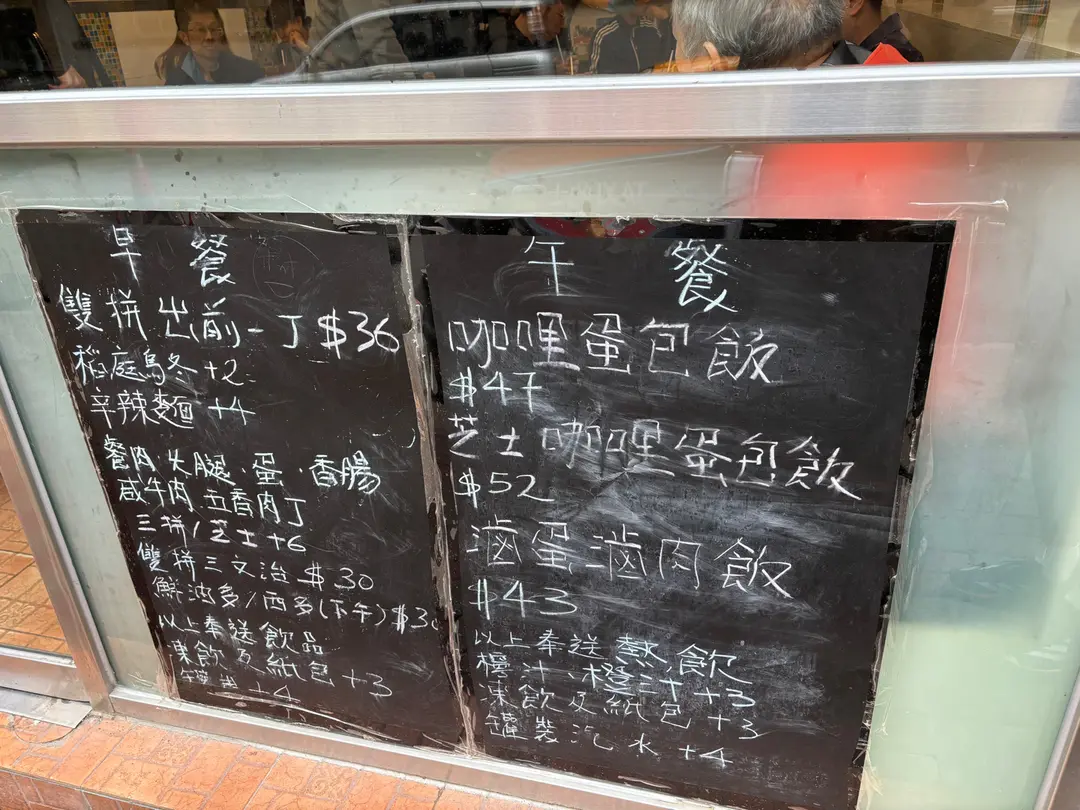 早餐
雙拼出前一丁 $36
稻庭烏冬 +2
辛辣麵 +4
餐肉·火腿·蛋·香腸
咸牛肉 五香肉丁
三拼/芝士+6
雙拼三文治 $30
鮮油多/西多(下午) $3
以上奉送飲品
凍飲及紙包 +3
+4
午餐
咖哩蛋包飯
$47
芝士咖哩蛋包飯
$52
滷蛋滷肉飯
$43
以上奉送熱飲
檸汁、橙汁 +3
凍飲及紙包 +3
罐裝汽水 +4